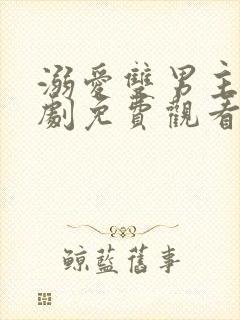 溺愛雙男主
劇免費觀看
鯨藍舊事